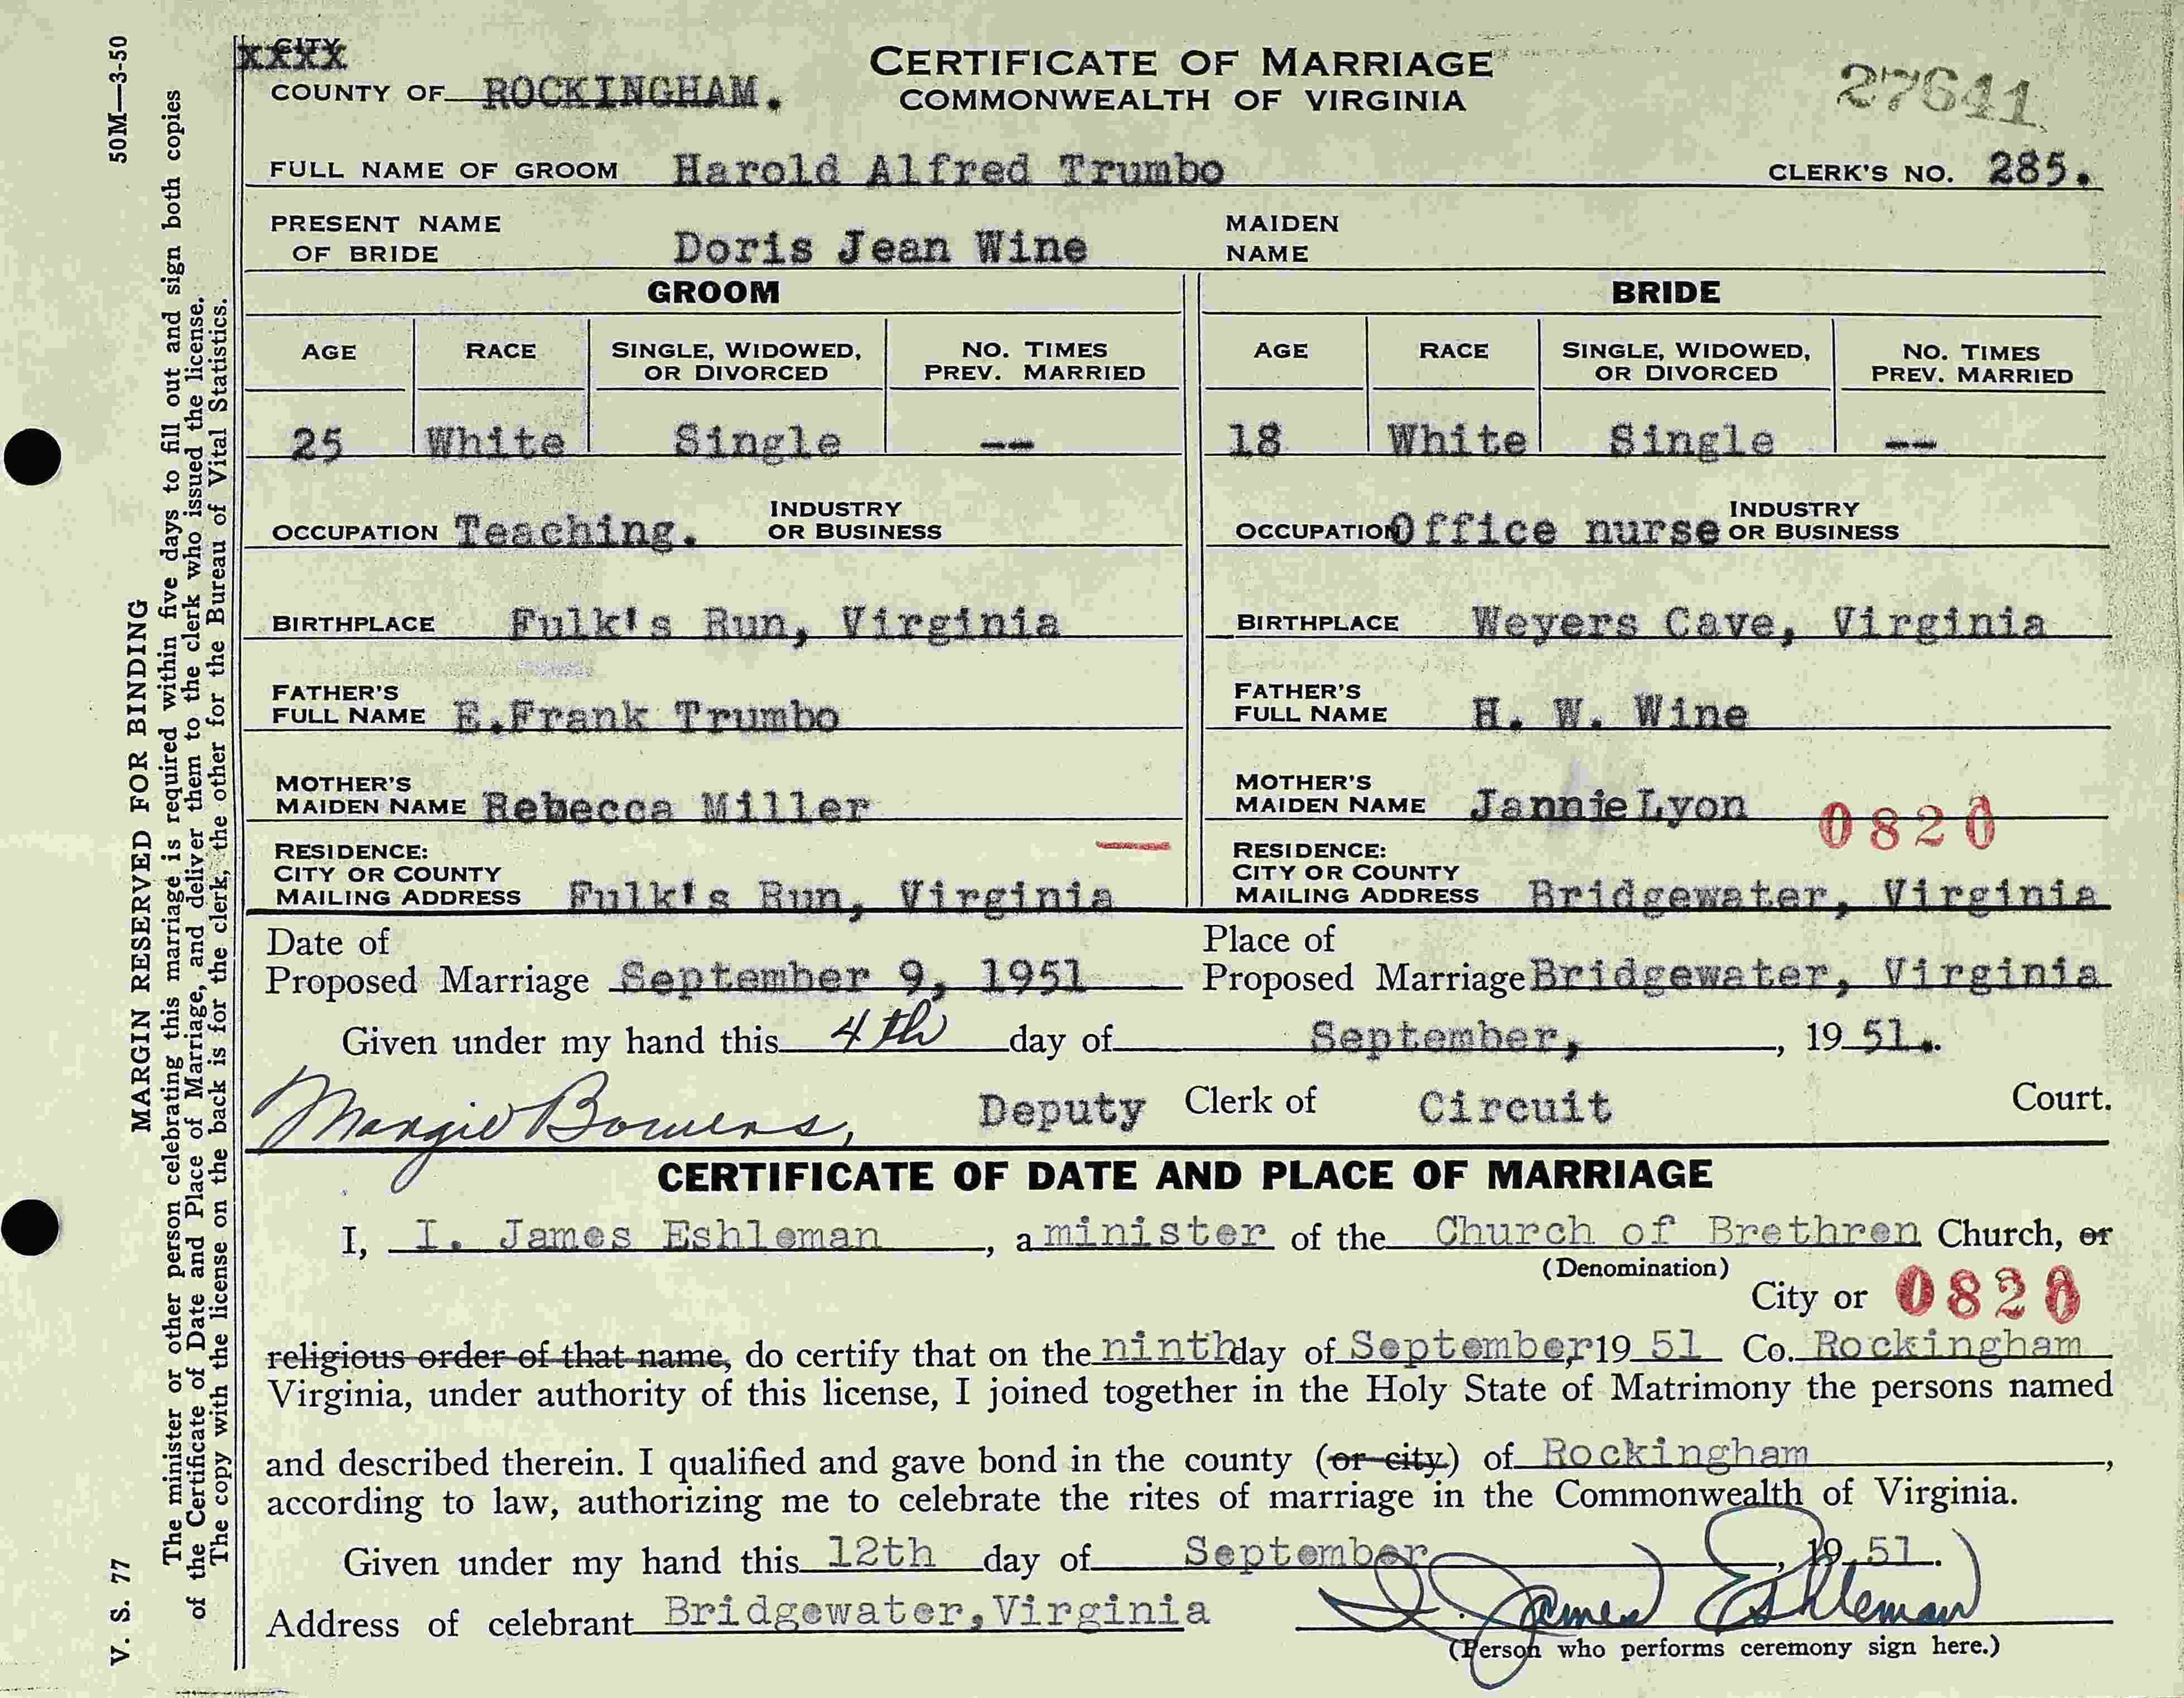 50M—3-50
MARGIN RESERVED FOR BINDING
The minister or other person celebrating this marriage is required within five days to fill out and sign both copies
of the Certificate of Date and Place of Marriage, and deliver them to the clerk who issued the license.
The copy with the license on the back is for the clerk, the other for the Bureau of Vital Statistics.
V. S. 77
CITY
XXXX
COUNTY OF ROCKINGHAM.
CERTIFICATE OF MARRIAGE
COMMONWEALTH OF VIRGINIA
27641
FULL NAME OF GROOM Harold Alfred Trumbo CLERK'S NO. 285.
PRESENT NAME MAIDEN
OF BRIDE Doris Jean Wine NAME
GROOM BRIDE
AGE RACE SINGLE, WIDOWED, NO. TIMES AGE RACE SINGLE, WIDOWED, NO. TIMES
OR DIVORCED PREV. MARRIED OR DIVORCED PREV. MARRIED
25 White Single -- 18 White Single --
INDUSTRY INDUSTRY
OCCUPATION Teaching. OR BUSINESS OCCUPATION Office nurse OR BUSINESS
BIRTHPLACE Fulk's Run, Virginia BIRTHPLACE Weyers Cave, Virginia
FATHER'S FATHER'S
FULL NAME E.Frank Trumbo FULL NAME H. W. Wine
MOTHER'S MOTHER'S
MAIDEN NAME Rebecca Miller MAIDEN NAME Jannie Lyon 0820
RESIDENCE: RESIDENCE:
CITY OR COUNTY CITY OR COUNTY
MAILING ADDRESS Fulk's Run, Virginia MAILING ADDRESS Bridgewater, Virginia
Date of Place of
Proposed Marriage September 9, 1951 Proposed Marriage Bridgewater, Virginia
Given under my hand this 4th day of September, , 19 51.
Margie Bowers, Deputy Clerk of Circuit Court.
CERTIFICATE OF DATE AND PLACE OF MARRIAGE
I, I. James Eshleman , a minister of the Church of Brethren Church, or
(Denomination)
City or 0820
religious order of that name, do certify that on the ninth day of September, 19 51 Co. Rockingham
Virginia, under authority of this license, I joined together in the Holy State of Matrimony the persons named
and described therein. I qualified and gave bond in the county (or city) of Rockingham ,
according to law, authorizing me to celebrate the rites of marriage in the Commonwealth of Virginia.
Given under my hand this 12th day of September , 19 51.
Address of celebrant Bridgewater, Virginia I. James Eshleman
(Person who performs ceremony sign here.)